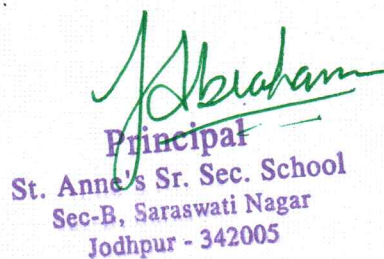 J Abraham
Principal
St. Anne's Sr. Sec. School
Sec-B, Saraswati Nagar
Jodhpur - 342005